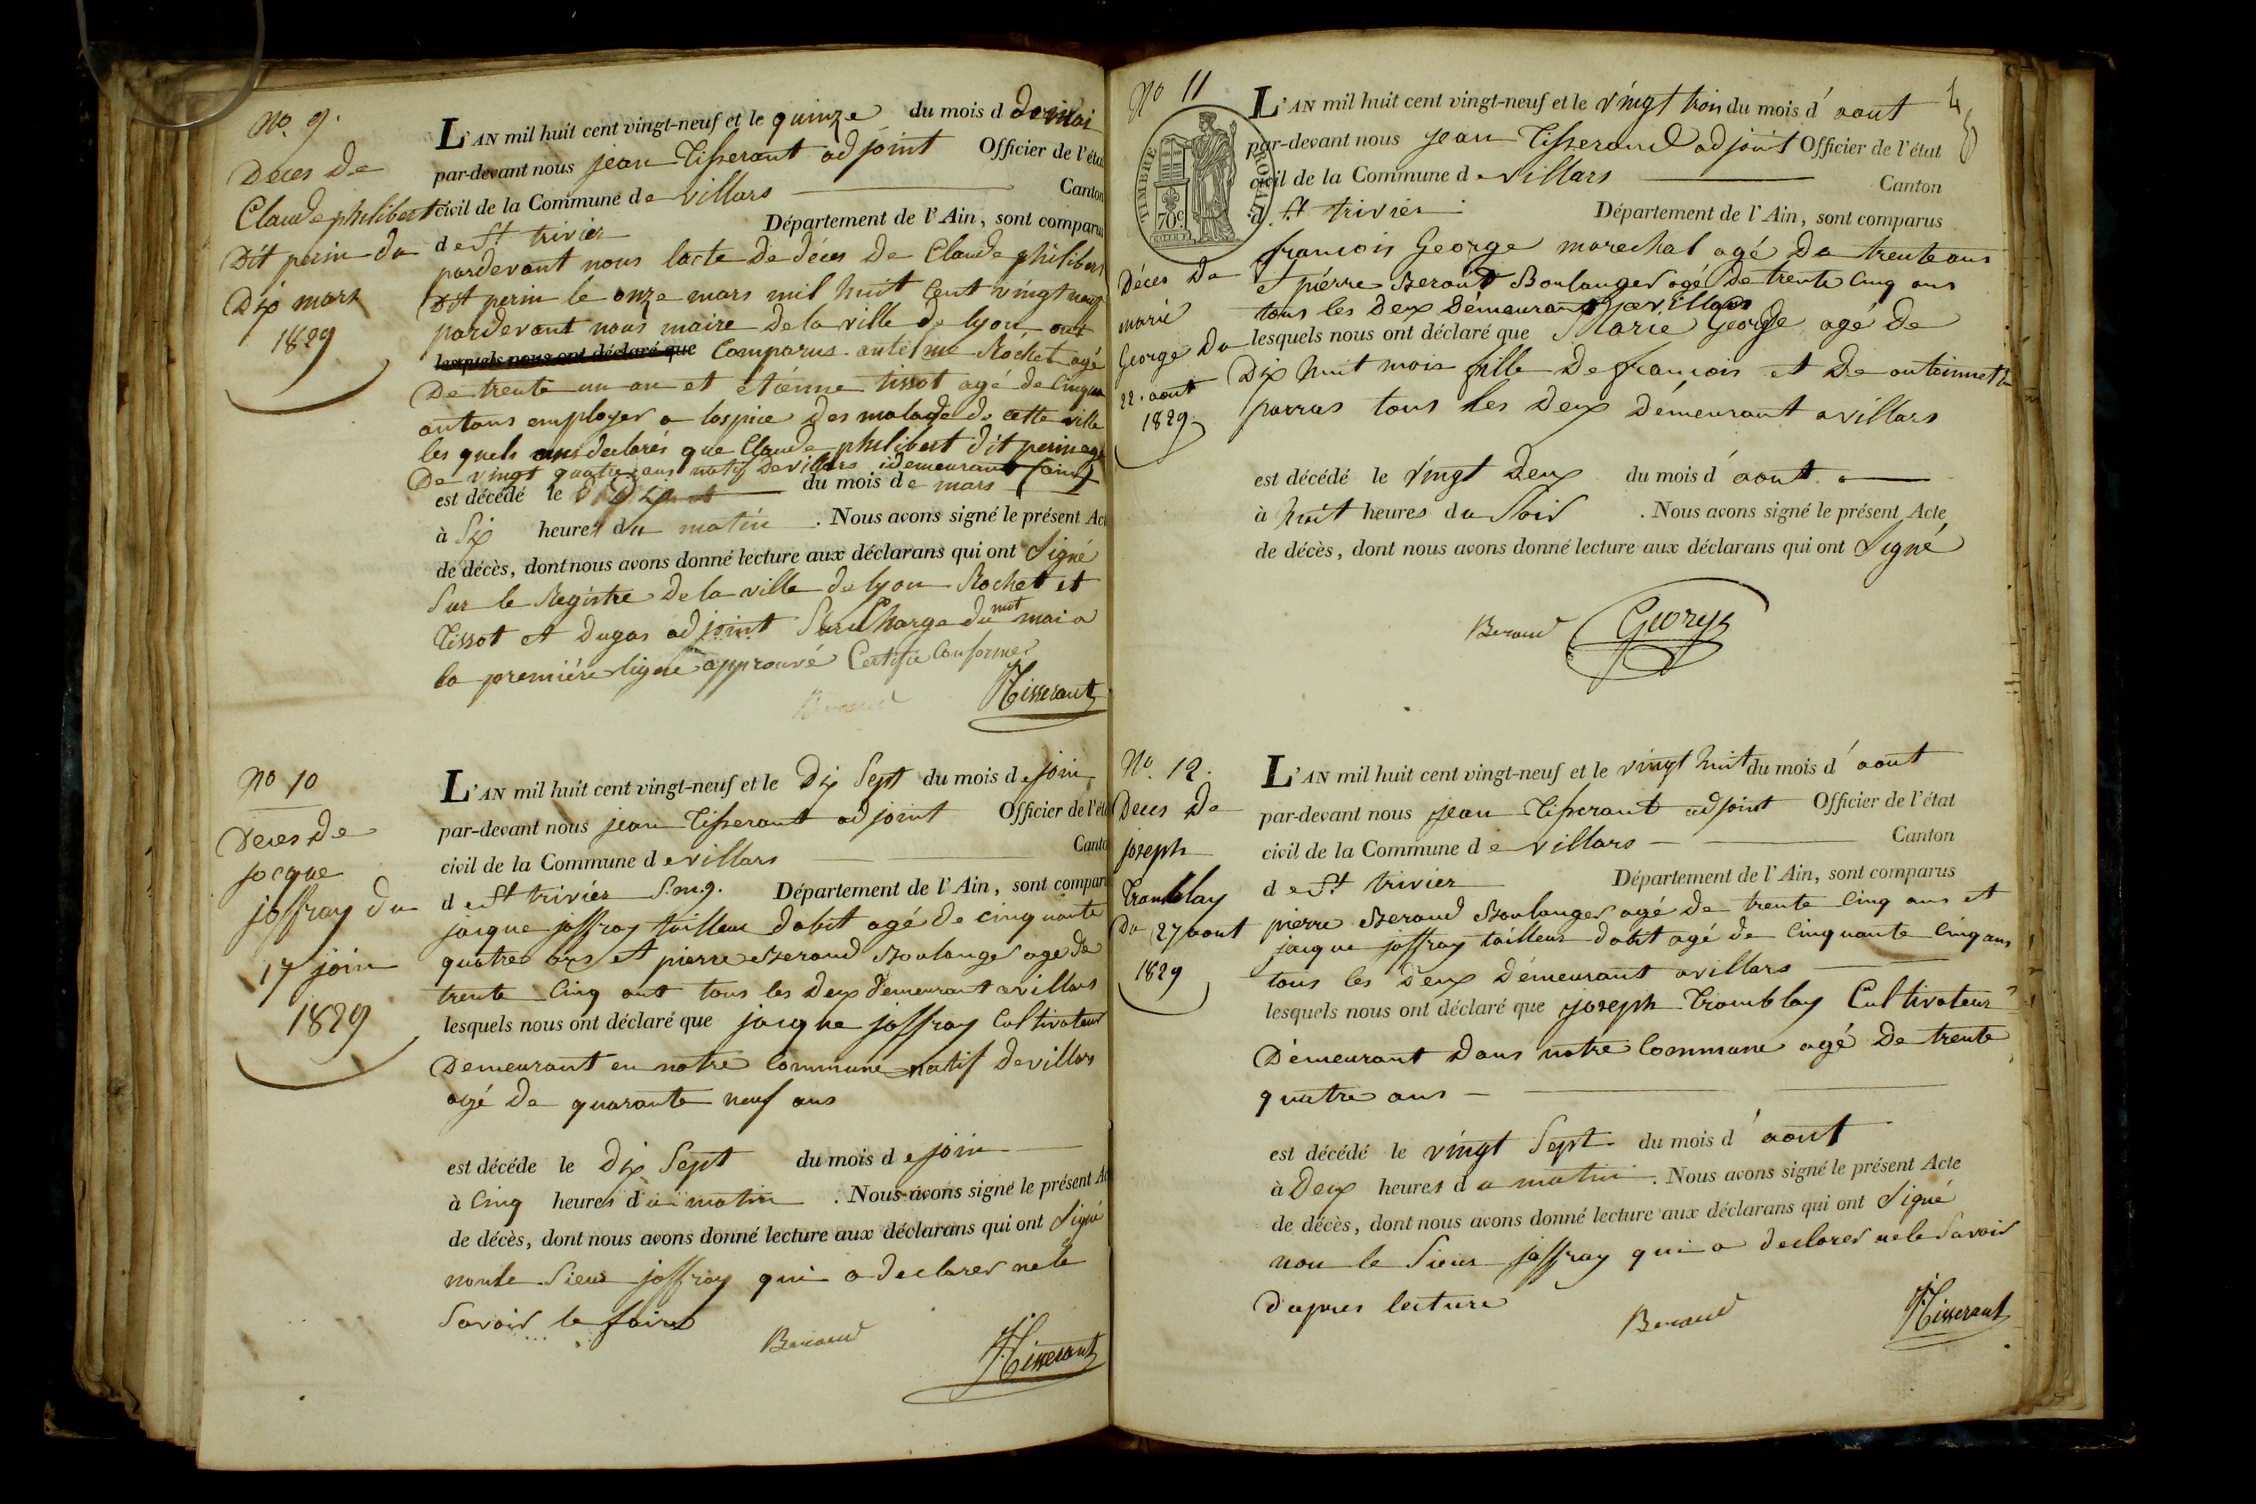 No. 9.
Deces de
Claude philibert
Dit perin du
Dix mars
1829
L'AN mil huit cent vingt-neuf et le quinze du mois d de mai
par-devant nous jean Tisserant adjoint Officier de l'état
civil de la Commune de villars Canton
de St trivier Département de l'Ain, sont comparus
pardevant nous lacte de déces de Claude philibert
Dit perin le onze mars mil huit Cent vingt neuf
pardevant nous maire de la ville de lyon ont
lesquels nous ont déclaré que Comparus antelme Rochet agé
De trente un an et etienne tissot agé de Cinquan
antans employer a lospice des malade de cette ville
les quels ont declarés que Claude philibert dit perin agé
De vingt quatre ans natif de villars idemeurant (ain)
est décédé le dix du mois de mars
à Six heures du matin . Nous avons signé le présent Act
de décès, dont nous avons donné lecture aux déclarans qui ont Signé
Sur le Registre de la ville de lyon Rochet et
Tissot et Dugas adjoint Surcharge du mot mai a
la premiére ligne approuvé Certifié Conformer
Beraud Tisserant
No 10
Deces de
jacque
joffray du
17 join
1829
L'AN mil huit cent vingt-neuf et le Dix Sept du mois de join
par-devant nous jean Tisserant adjoint Officier de l'état
civil de la Commune de villars Canto
de St trivier S.m.g. Département de l'Ain, sont compar
jacque joffray tailleur dabit agé de cinquante
quatre ans et pierre Beraud Boulanger agé de
trente Cinq ant tous les deux demeurant a villars
lesquels nous ont déclaré que jacque joffray Cultivateur
Demeurant en notre Commune natif de villars
agé de quarante neuf ans
est décéde le Dix Sept du mois de join
à Cinq heures du matin . Nous avons signé le présent Ac
de décès, dont nous avons donné lecture aux déclarans qui ont Signé
non le Sieur joffray qui a declarer ne le
Savoir le faire
Beraud Tisserant
No 11
Déces de
marie
George du
22. aout
1829
TIMBRE ROYAL
70 c.
L'AN mil huit cent vingt-neuf et le vingt trois du mois d'aout
par-devant nous jean Tisserand adjoint Officier de l'état
civil de la Commune de villars Canton
d. St trivier Département de l'Ain, sont comparus
francois George marechal agé de trente ans
et piérre Beraud Boulanger agé de trente Cinq ans
tous les deux démeurant a villars
lesquels nous ont déclaré que Marie George agé de
Dix huit mois fille de francois et de antoinnette
parras tous les deux démeurant a villars
est décédé le vingt deux du mois d'aout
à huit heures du Soir . Nous avons signé le présent Acte
de décès, dont nous avons donné lecture aux déclarans qui ont Signé
Beraud George
No. 12.
Deces de
joseph
Tramblay
Du 27 aout
1829
L'AN mil huit cent vingt-neuf et le vingt huit du mois d'aout
par-devant nous jean Tisserant adjoint Officier de l'état
civil de la Commune de villars Canton
de St trivier Département de l'Ain, sont comparus
pierre Beraud Boulanger agé de trente Cinq ans et
jacque joffray tailleur dabit agé de Cinquante Cinq ans
tous les deux démeurant a villars
lesquels nous ont déclaré que joseph Tramblay Cultivateur
Démeurant dans notre Commune agé de trente
quatre ans
est décédé le vingt Sept du mois d'aout
à Deux heures du matin . Nous avons signé le présent Acte
de décès, dont nous avons donné lecture aux déclarans qui ont Signé
non le Sieur joffray qui a declarer ne le Savoir
d'apres lecture
Beraud Tisserant